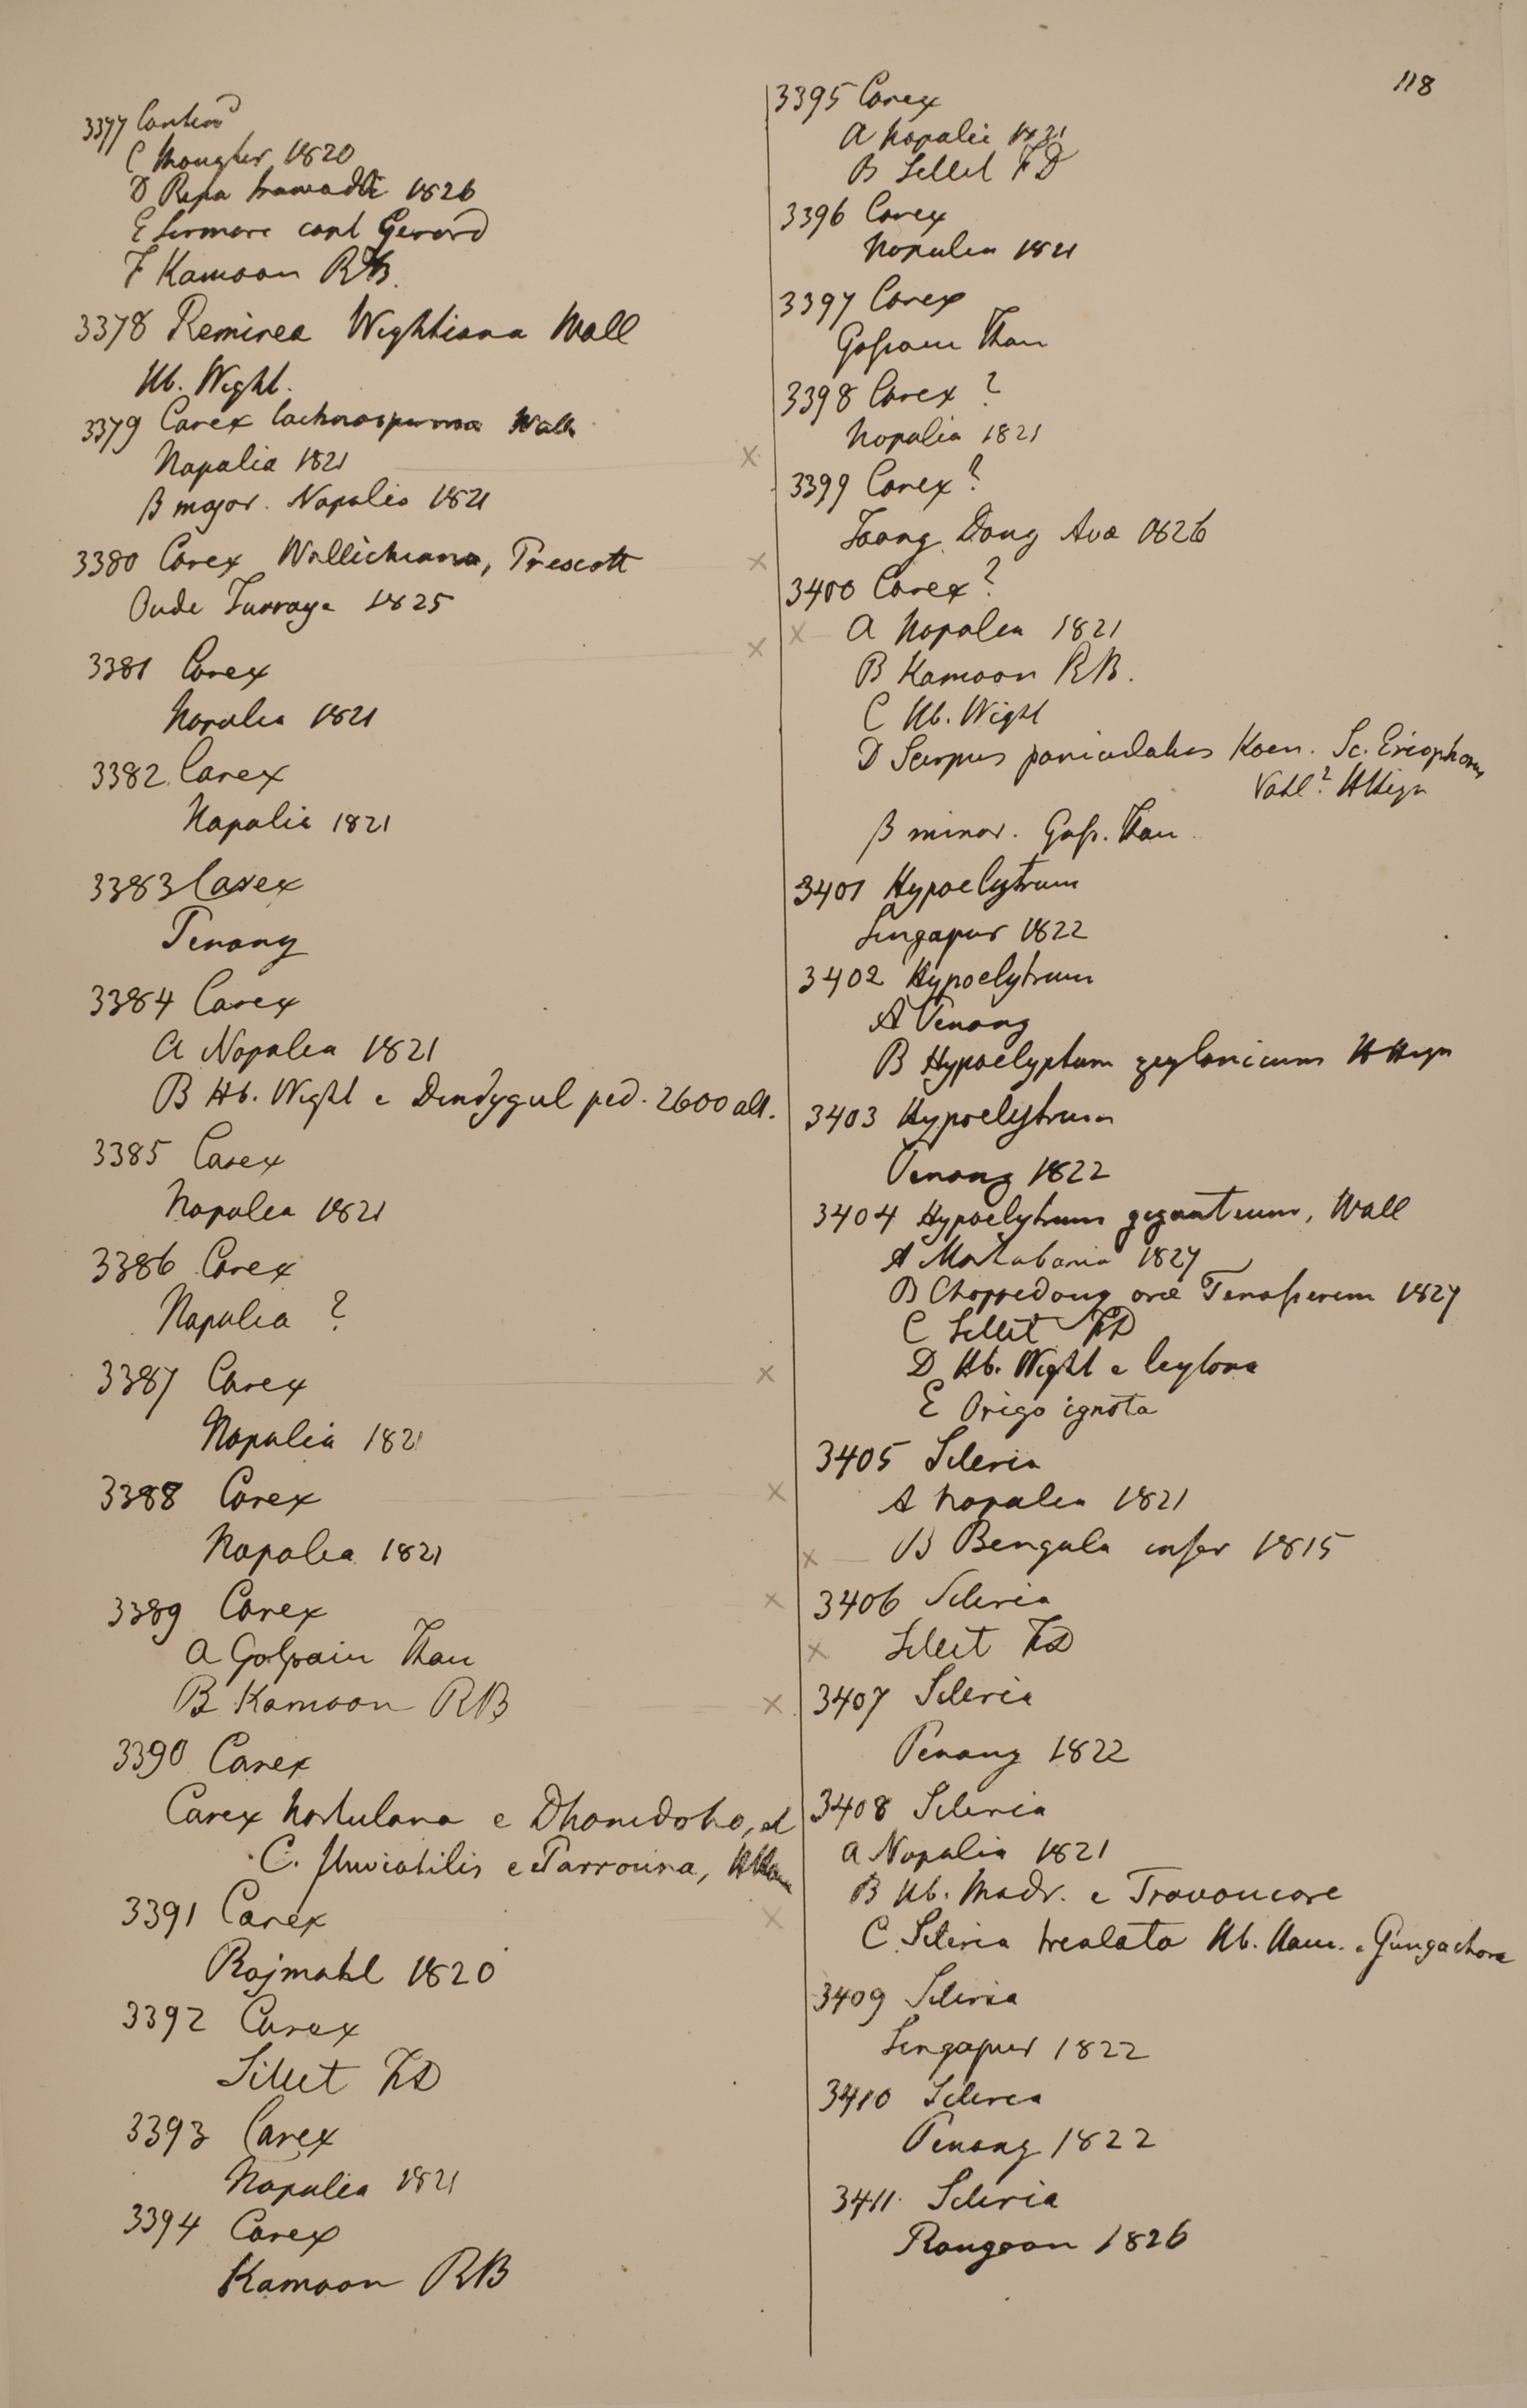 118
3377 Contin
C Monghir 1820
D Ripa Irawaddi 1826
E Sirmore capt Gerard
F Kamoon RB.
3378 Remirea Wightiana Wall
Hb. Wight.
3379 Carex lachnosperma Wall
Napalia 1821
β major. Napalia 1821
3380 Carex Wallichiana, Prescott
Oude Turraye 1825
3381 Carex
Napalia 1821
3382 Carex
Napalia 1821
3383 Carex
Penang
3384 Carex
A Napalia 1821
B Hb. Wight e Dindygul ped. 2600 alt.
3385 Carex
Napalia 1821
3386 Carex
Napalia ?
3387 Carex
Napalia 1821
3388 Carex
Napalia 1821
3389 Carex
A Gosain Than
B Kamoon RB
3390 Carex
Carex hortulana e Dhamdoho, et
C. fluviatilis e Parrouna, HHam
3391 Carex
Rajmahl 1820
3392 Carex
Sillet FD
3393 Carex
Napalia 1821
3394 Carex
Kamoon RB
3395 Carex
A Napalia 1821
B Sillet FD
3396 Carex
Napalia 1821
3397 Carex
Gossain Than
3398 Carex ?
Napalia 1821
3399 Carex ?
Taong Dong Ava 1826
3400 Carex ?
A Napalia 1821
B Kamoon RB.
C Hb. Wight
D Scirpus paniculatus Koen. Sc. Eriophorus
Vahl ? HHeyn
β minor. Goss. Than
3401 Hypoelytrum
Singapur 1822
3402 Hypoelytrum
A Penang
B Hypoelyptum zeylanicum HHeyn
3403 Hypoelytrum
Penang 1822
3404 Hypoelytrum giganteum, Wall
A Martabania 1827
B Choppedong oræ Tenasserim 1827
C Sillet FD
D Hb. Wight e Ceylona
E Origo ignota
3405 Scleria
A Napalia 1821
B Bengala infer 1815
3406 Scleria
Sillet FD
3407 Scleria
Penang 1822
3408 Scleria
A Napalia 1821
B Hb. Madr. e Travancore
C Scleria Hb. Ham. e Gungachora
3409 Scleria
Singapur 1822
3410 Scleria
Penang 1822
3411 Scleria
Rangoon 1826